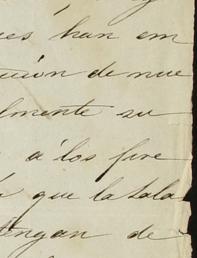 es han em
ción de nue
lmente su
á los fire
que la tala
tengan de